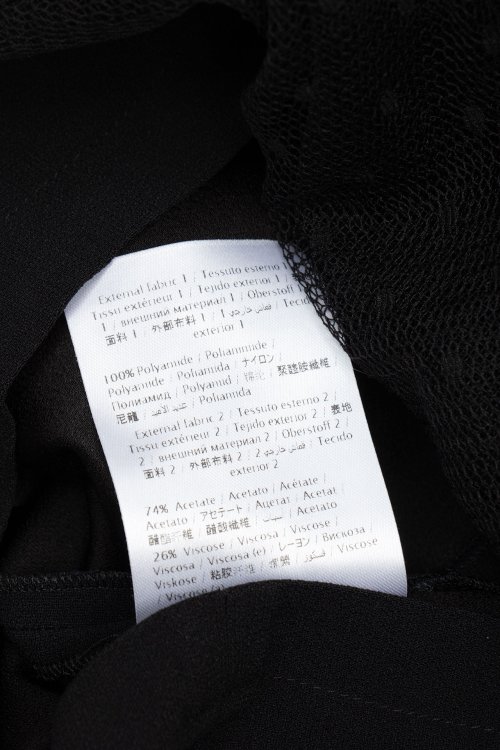 External fabric 1 / Tessuto esterno 1
Tissu extérieur 1 / Tejido exterior 1
1 / внешний материал 1 / Oberstoff 1
面料 1 / 外部布料 1 / قماش خارجي 1 / Tecido
exterior 1
100% Polyamide / Poliammide /
Polyamide / Poliamida / ナイロン /
Полиамид / Polyamid / 錦綸 / 聚醯胺纖維
尼龍 / Poliamida
External fabric 2 / Tessuto esterno 2 /
Tissu extérieur 2 / Tejido exterior 2 / 表地
2 / внешний материал 2 / Oberstoff 2 /
面料 2 / 外部布料 2 / قماش خارجي 2 / Tecido
exterior 2
74% Acetate / Acetato / Acétate /
Acetato / アセテート / Ацетат / Acetat /
醋酯纤维 / 醋酸纖維 / Acetato
26% Viscose / Viscosa / Viscose /
Viscosa / Viscosa (e) / レーヨン / Вискоза /
Viskose / 粘胶 / فسكوز / Viscose